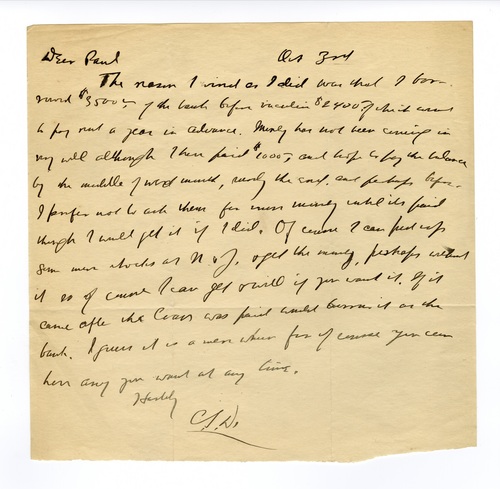 Dear Paul Oct 3rd
The reason I wired as I did was that I bor-
rowed $3500 of the bank before including $2400 of which went
to pay rent a year in advance. Money has not been coming in
very well although I have paid $1000 and hope to pay the balance
by the middle of next month, surely the end. and perhaps before.
I prefer not to ask them for more money until its paid
though I would get it if I did. Of course I can put up
some more stocks as N of J, & get the money, perhaps without
it so of course I can get it if you want it. If it
came after the loan was paid would borrow it at the
bank. I guess it is a mere whim for of course you can
have any you want at any time.
Hastily
C.S.D.